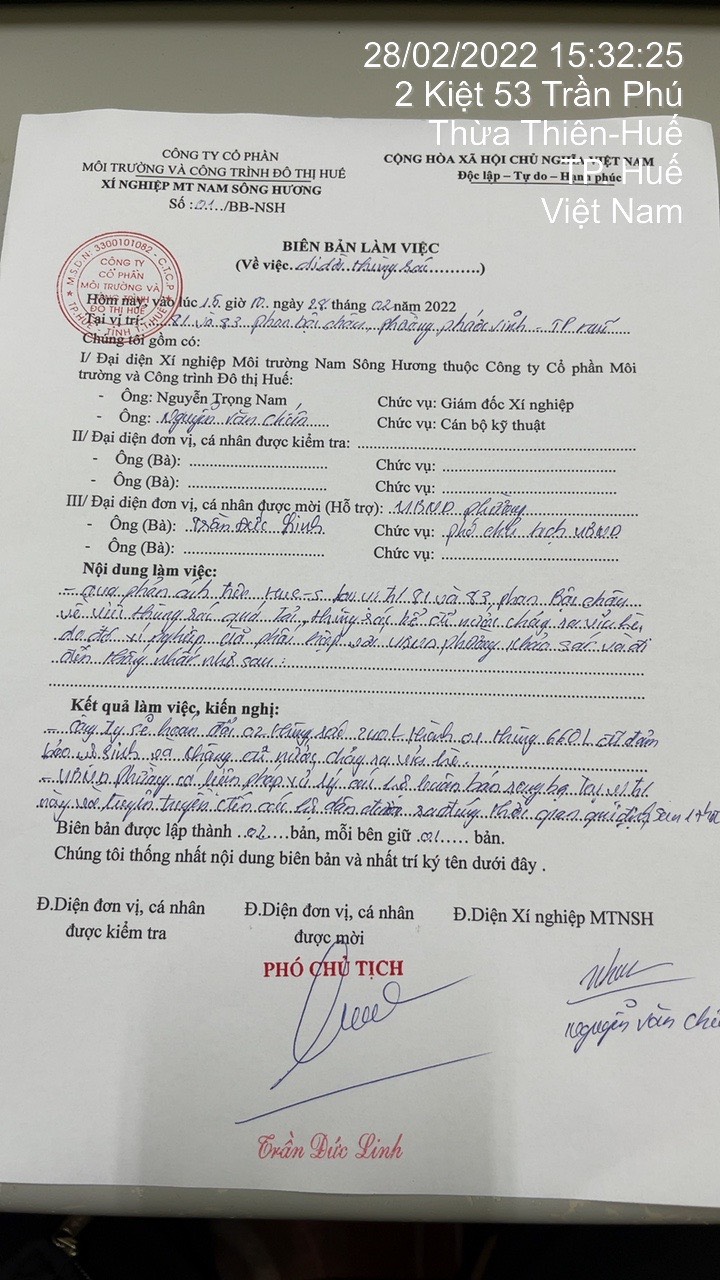 28/02/2022 15:32:25
2 Kiệt 53 Trần Phú
Thừa Thiên-Huế
TP. Huế
Việt Nam
CÔNG TY CỔ PHẦN
MÔI TRƯỜNG VÀ CÔNG TRÌNH ĐÔ THỊ HUẾ
XÍ NGHIỆP MT NAM SÔNG HƯƠNG
Số :.01../BB-NSH
CỘNG HÒA XÃ HỘI CHỦ NGHĨA VIỆT NAM
Độc lập – Tự do – Hạnh phúc
BIÊN BẢN LÀM VIỆC
(Về việc..di dời thùng rác..........)
M.S.D.N: 3300101082 - C.T.C.P
CÔNG TY
CỔ PHẦN
MÔI TRƯỜNG VÀ
CÔNG TRÌNH
ĐÔ THỊ HUẾ
TP. HUẾ - TỈNH T.T. HUẾ
Hôm nay, vào lúc 15 giờ 10. ngày 28 tháng 02 năm 2022
Tại vị trí: 81 và 83 phan bội châu, phường phước vĩnh - TP Huế
Chúng tôi gồm có:
I/ Đại diện Xí nghiệp Môi trường Nam Sông Hương thuộc Công ty Cổ phần Môi
trường và Công trình Đô thị Huế:
- Ông: Nguyễn Trọng Nam Chức vụ: Giám đốc Xí nghiệp
- Ông: Nguyễn văn Chiến Chức vụ: Cán bộ kỹ thuật
II/ Đại diện đơn vị, cá nhân được kiểm tra: ..................................................
- Ông (Bà): ............................ Chức vụ: ...................................
- Ông (Bà): ............................ Chức vụ: ...................................
III/ Đại diện đơn vị, cá nhân được mời (Hỗ trợ): UBND phường
- Ông (Bà): Trần Đức Linh Chức vụ: phó chủ tịch UBND
- Ông (Bà): ............................ Chức vụ: ...................................
Nội dung làm việc:
- qua phản ánh trên Hue-S tại vị trí 81 và 83, phan Bội châu
về việc thùng rác quá tải, thùng rác để nước chảy ra vỉa hè
do đó xí nghiệp đã phối hợp với UBND phường khảo sát và đi
đến thống nhất như sau:
Kết quả làm việc, kiến nghị:
- Công ty sẽ hoán đổi 02 thùng rác 240L thành 01 thùng 660L để đảm
bảo vệ sinh và không để nước chảy ra vỉa hè.
- UBND phường có biện pháp xử lý các hộ buôn bán tại vị trí
này và tuyên truyền đến các hộ dân đưa ra đúng thời gian qui định, sau
Biên bản được lập thành .02...bản, mỗi bên giữ .01..... bản.
Chúng tôi thống nhất nội dung biên bản và nhất trí ký tên dưới đây .
Đ.Diện đơn vị, cá nhân Đ.Diện đơn vị, cá nhân Đ.Diện Xí nghiệp MTNSH
được kiểm tra được mời
PHÓ CHỦ TỊCH
nguyễn văn Chi
Trần Đức Linh